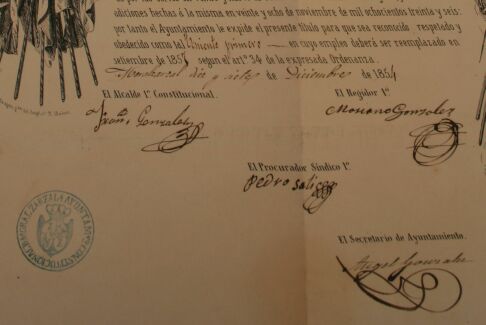 adiciones hechas á la misma en veinte y ocho de noviembre de mil ochocientos treinta y seis:
por tanto el Ayuntamiento le expide el presente título para que sea reconocido, respetado y
obedecido como tal Teniente primero en cuyo empleo deberá ser reemplazado en
setiembre de 185 segun el art.º 34 de la expresada Ordenanza.
diez y siete de Diciembre de 1854
El Alcalde 1.º Constitucional.
El Regidor 1.º
Gonzalez
Mariano Gonzalez
El Procurador Síndico 1.º
Pedro Salices
El Secretario de Ayuntamiento.
Angel Gonzalez